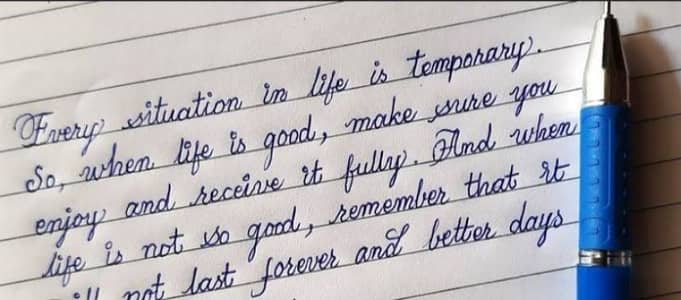 Every situation in life is temporary.
So, when life is good, make sure you
enjoy and receive it fully. And when
life is not so good, remember that it
not last forever and better days